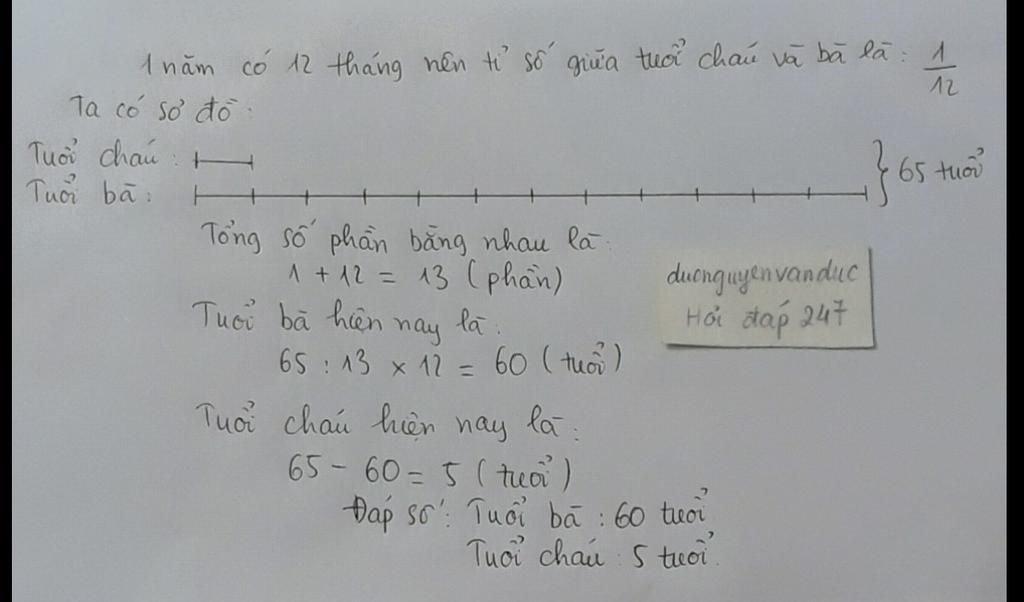 1 năm có 12 tháng nên tỉ số giữa tuổi cháu và bà là: 1/12
Ta có sơ đồ:
Tuổi cháu:
Tuổi bà:
65 tuổi
Tổng số phần bằng nhau là:
1 + 12 = 13 (phần)
Tuổi bà hiện nay là:
65 : 13 × 12 = 60 (tuổi)
Tuổi cháu hiện nay là:
65 - 60 = 5 (tuổi)
Đáp số: Tuổi bà: 60 tuổi
Tuổi cháu: 5 tuổi.
ducnguyenvanduc
Hỏi đáp 247